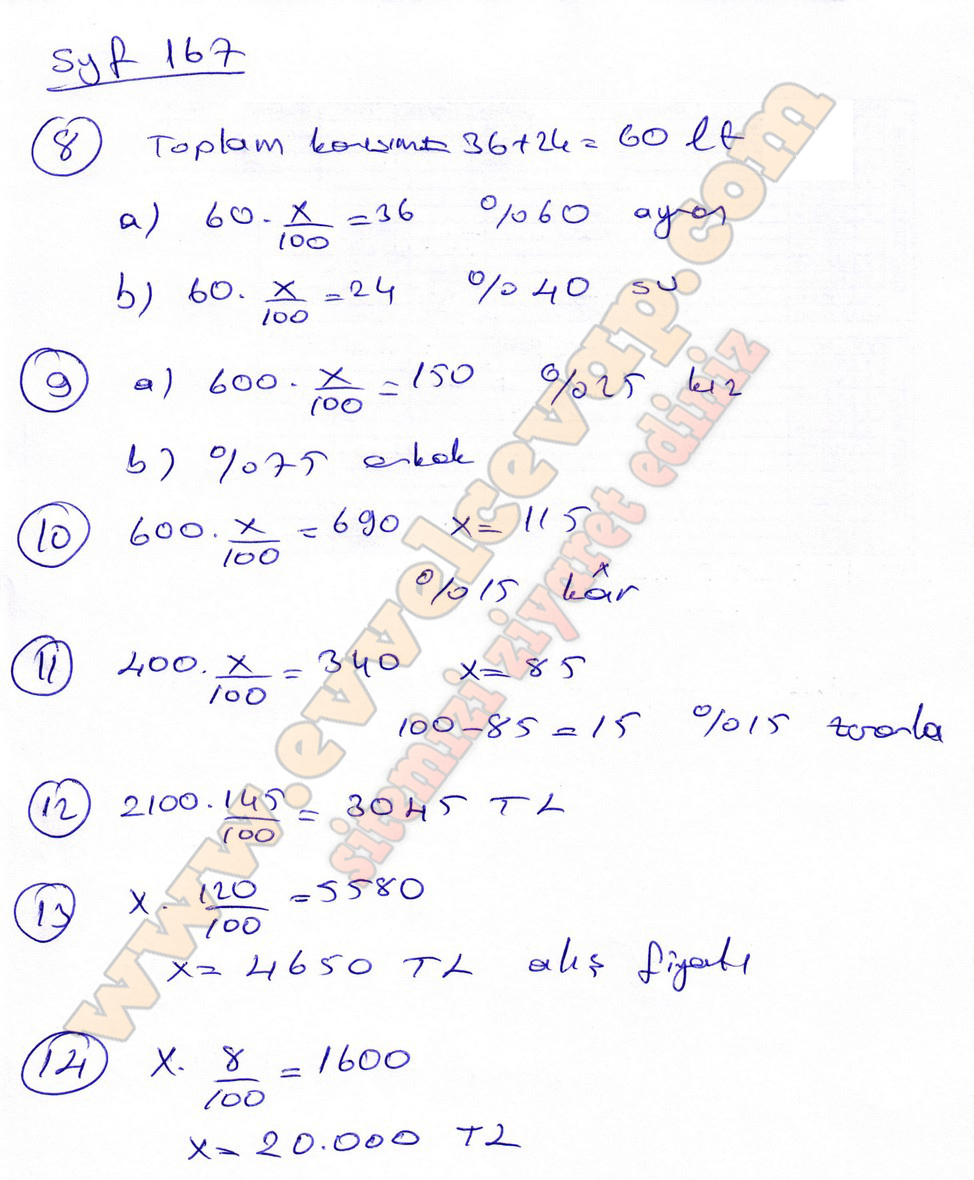 Syf 167
8 Toplam karışım 36+24= 60 lt
a) 60. x/100 =36 %60 ayran
b) 60. x/100 =24 %40 su
9 a) 600. x/100 =150 %25 kız
b) %75 erkek
10 600. x/100 = 690 x= 115
%15 kâr
11 400. x/100 = 340 x= 85
100-85=15 %15 zararla
12 2100. 145/100 = 3045 TL
13 x. 120/100 =5580
x= 4650 TL alış fiyatı
14 x. 8/100 = 1600
x= 20.000 TL
www.evvelcevap.com
sitemizi ziyaret ediniz